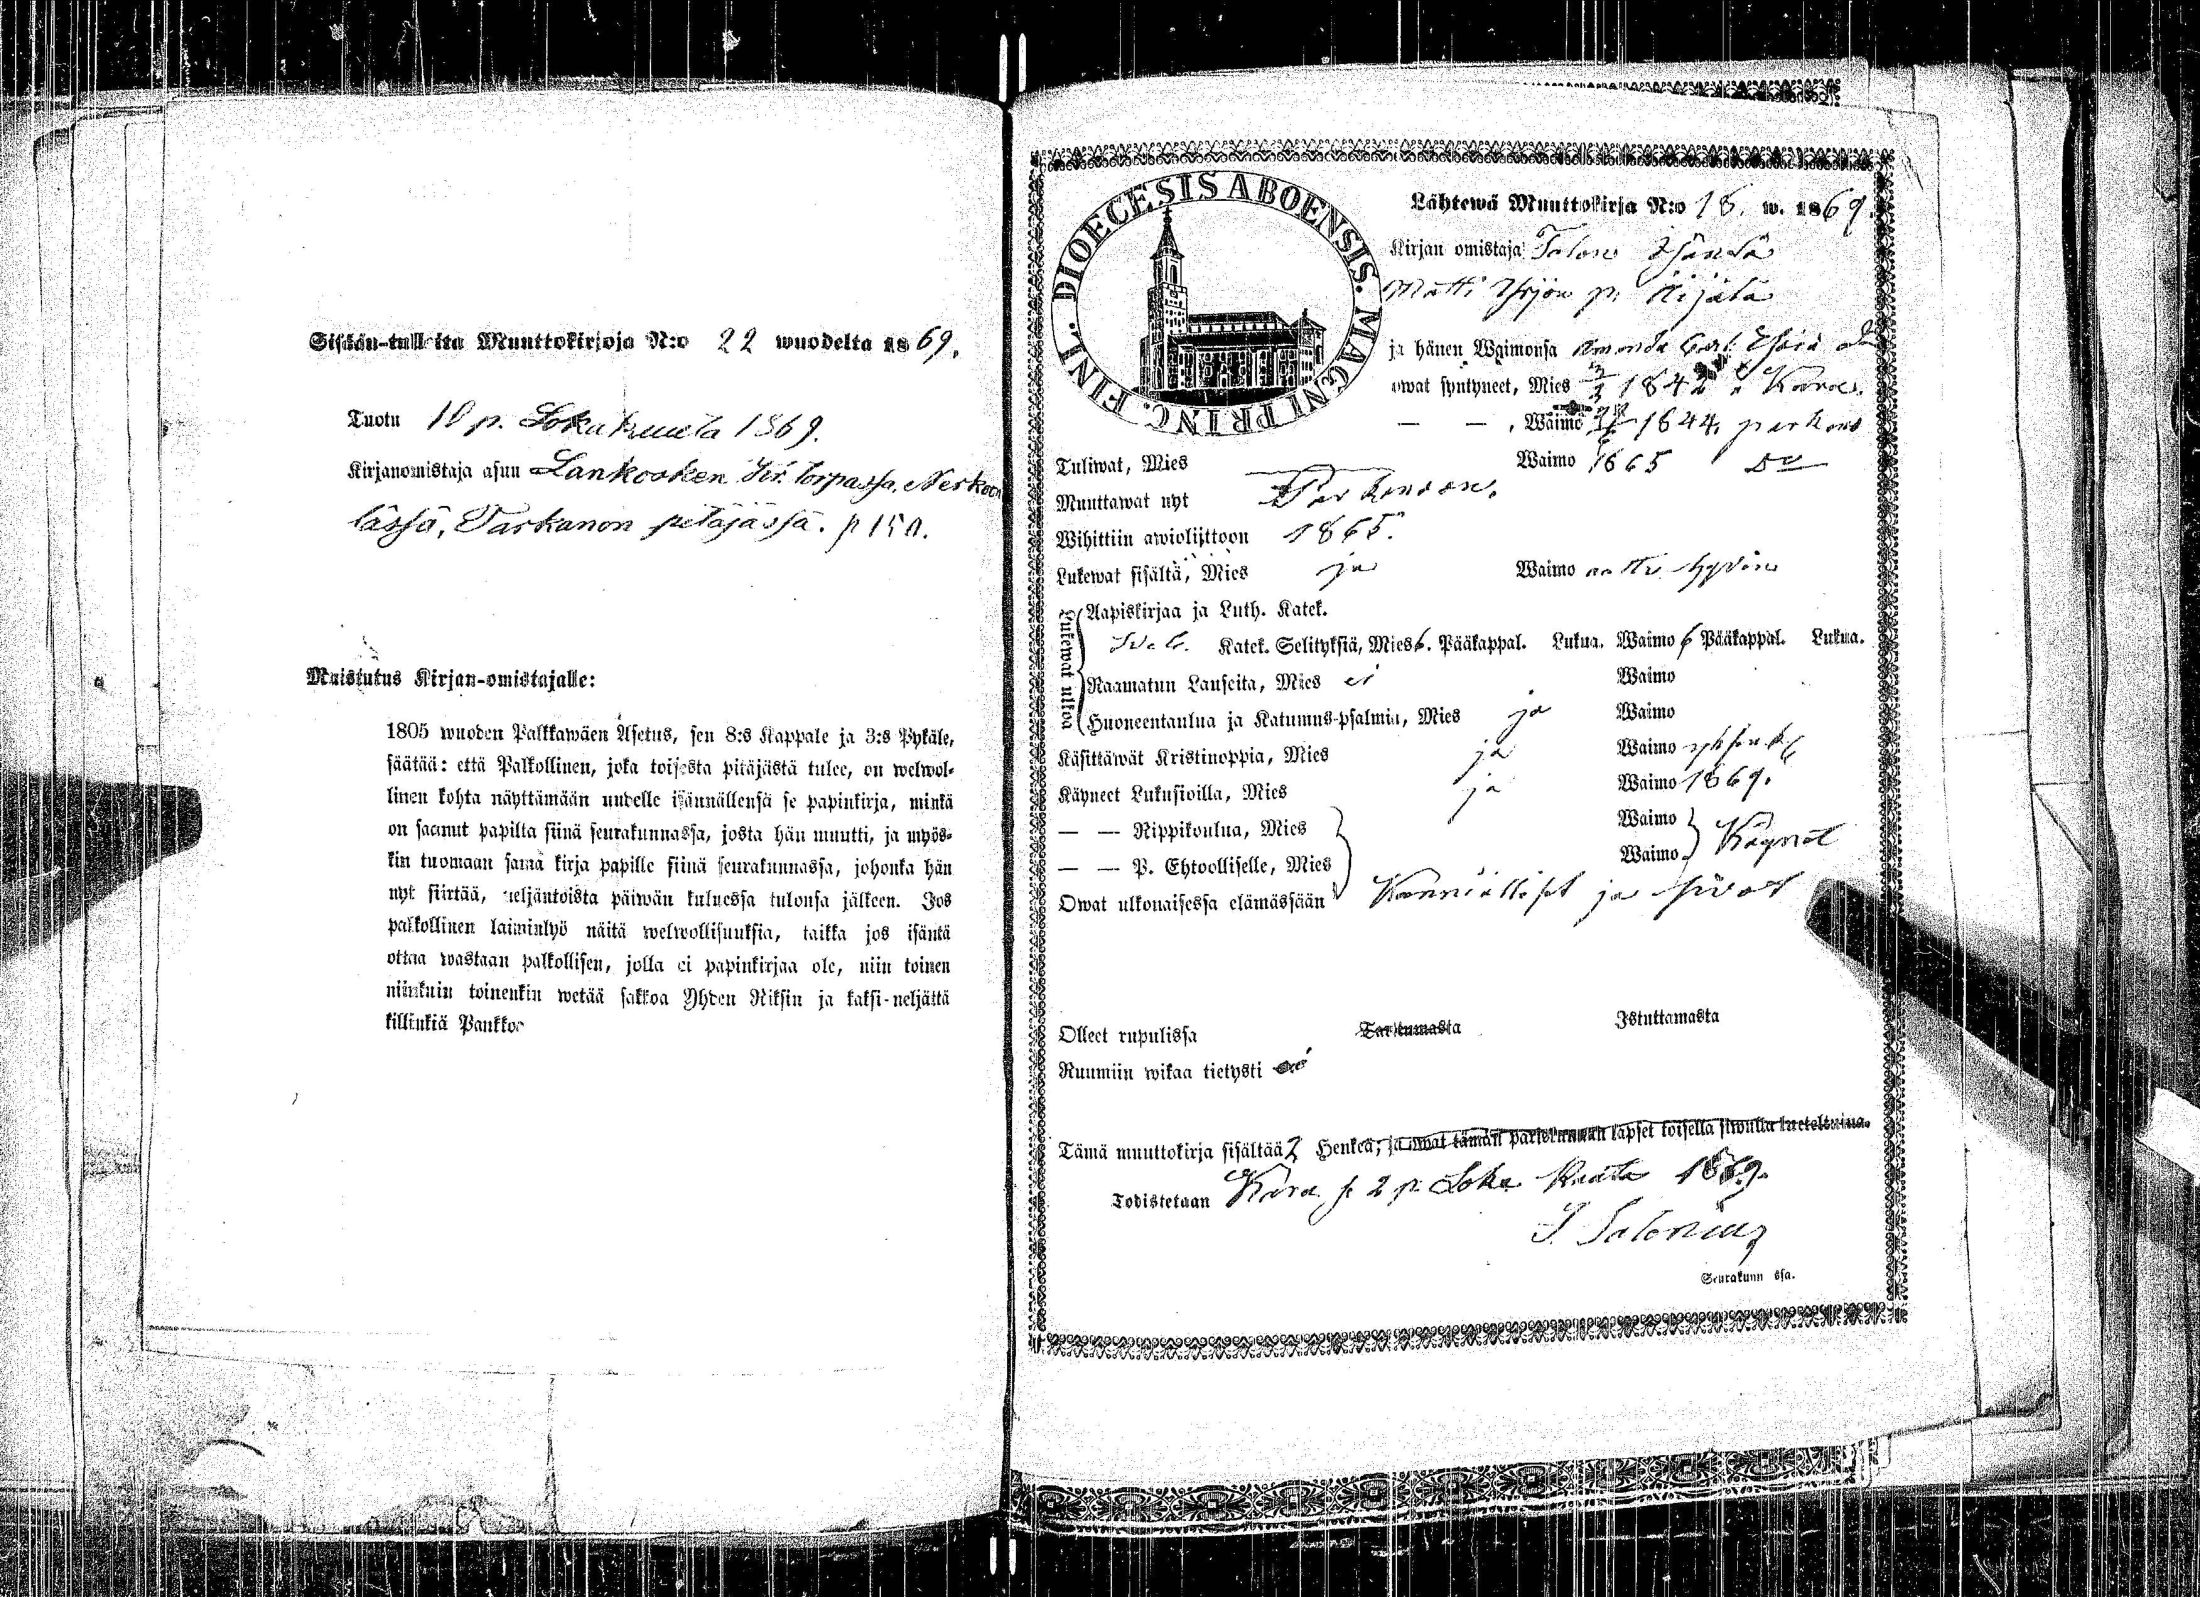 Sisään-tulleita Muuttokirjoja N:o 22 wuodelta 1869.
Tuotu 10 p. Lokakuuta 1869.
Kirjanomistaja asuu Lankosken torpassa,
lässä, Parkanon pitäjässä. p 150.
Muistutus Kirjan-omistajalle:
1805 wuoden Palkkawäen Asetus, sen 8:s Kappale ja 3:s Pykäle,
säätää: että Palkollinen, joka toisesta pitäjästä tulee, on welwol-
linen kohta näyttämään uudelle isännällensä se papinkirja, minkä
on saanut papilta siinä seurakunnassa, josta hän muutti, ja myös-
kin tuomaan sama kirja papille siinä seurakunnassa, johonka hän
nyt siirtää, neljäntoista päiwän kuluessa tulonsa jälkeen. Jos
palkollinen laiminlyö näitä welwollisuuksia, taikka jos isäntä
ottaa wastaan palkollisen, jolla ei papinkirjaa ole, niin toinen
niinkuin toinenkin wetää sakkoa Yhden Riksin ja kaksi-neljättä
killinkiä Pankkoa
DIOECESIS ABOENSIS. MAGNI PRINC. FINL.
Lähtewä Muuttokirja N:o 18. w. 1869.
Kirjan omistaja Talon Isäntä
Matti Yrjön p.
ja hänen Waimonsa Amanda
owat syntyneet, Mies 1842
— — , Waimo 1844.
Tuliwat, Mies Waimo 1865 Do
Muuttawat nyt Parkanoon.
Wihittiin awioliittoon 1865.
Lukewat sisältä, Mies ja Waimo hywin
Lukewat ulkoa
Aapiskirjaa ja Luth. Katek.
Katek. Selityksiä, Mies 6. Pääkappal. Lukua. Waimo 6 Pääkappal. Lukua.
Raamatun Lauseita, Mies ei Waimo
Huoneentaulua ja Katumus-psalmia, Mies ja Waimo
Käsittäwät Kristinoppia, Mies ja Waimo
Käyneet Lukusioilla, Mies ja Waimo 1869.
— — Rippikoulua, Mies Waimo
— — P. Ehtoolliselle, Mies Waimo Käynet
Owat ulkonaisessa elämässään Kunnialliset ja siwät
Olleet rupulissa Tarttumasta Istuttamasta
Ruumiin wikaa tietysti ei
Tämä muuttokirja sisältää 2 Henkeä, ja owat tämän pariskunnan lapset toisella siwulla lueteltuina.
Todistetaan 2 p. Loka kuuta 1869.
Seurakunnassa.